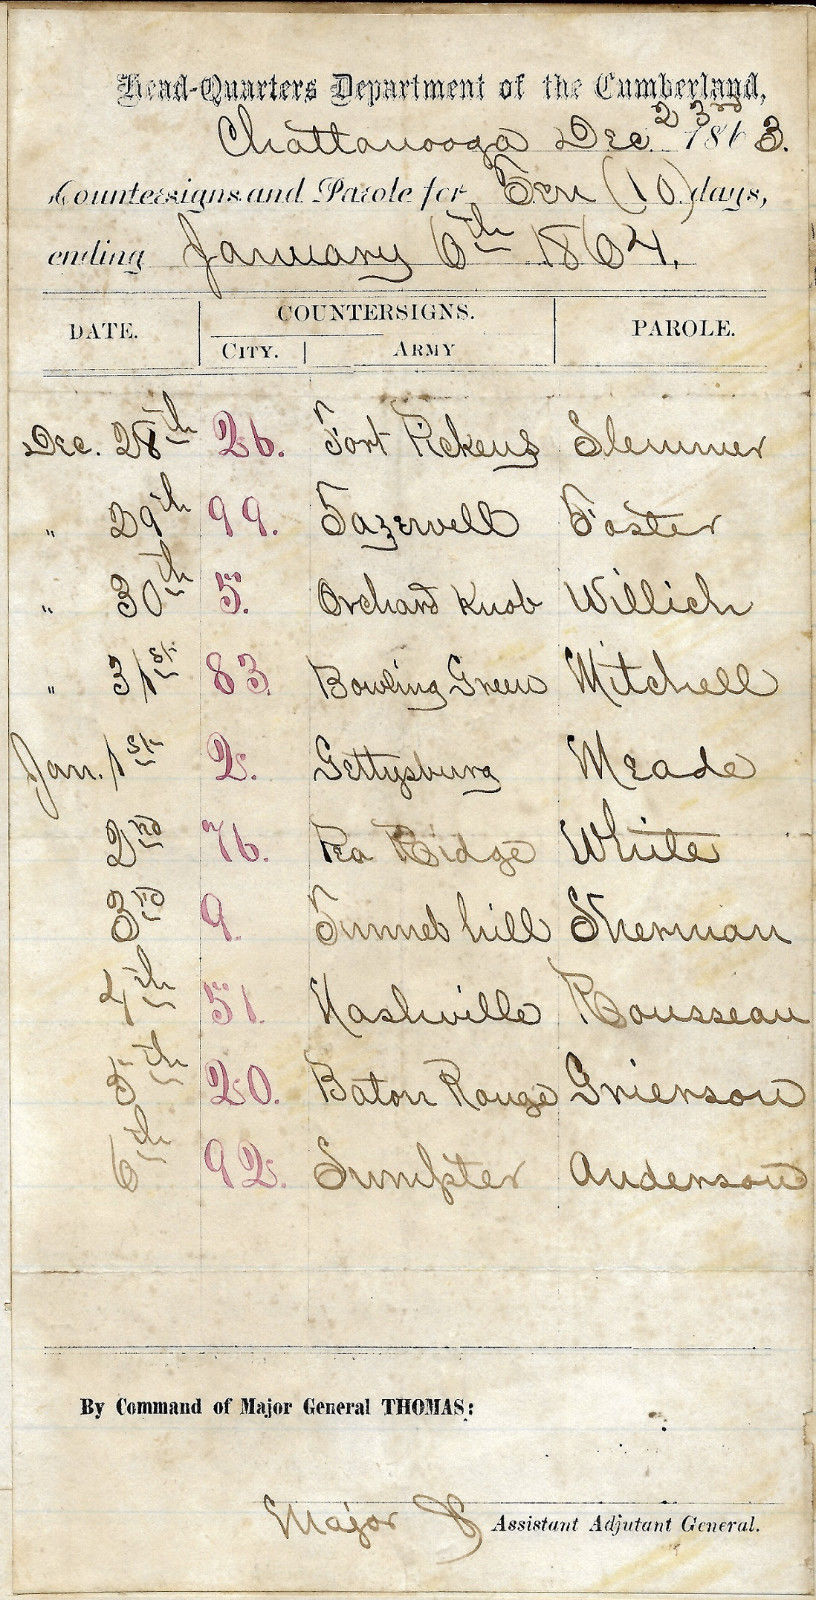 Head-Quarters Department of the Cumberland,
Chattanooga Dec. 23rd 1863.
Countersigns and Parole for Ten (10) days,
ending January 6th 1864.
DATE. COUNTERSIGNS. PAROLE.
CITY. ARMY
Dec. 28th 26. Fort Pickens Slemmer
" 29th 99. Tazewell Foster
" 30th 5. Orchard Knob Willich
" 31st 83. Bowling Green Mitchell
Jan. 1st 2. Gettysburg Meade
2nd 76. Pea Ridge White
3rd 9. Tunnel hill Sherman
4th 51. Nashville Rousseau
5th 20. Baton Rouge Grierson
6th 92. Sumpter Anderson
By Command of Major General THOMAS:
Major & Assistant Adjutant General.